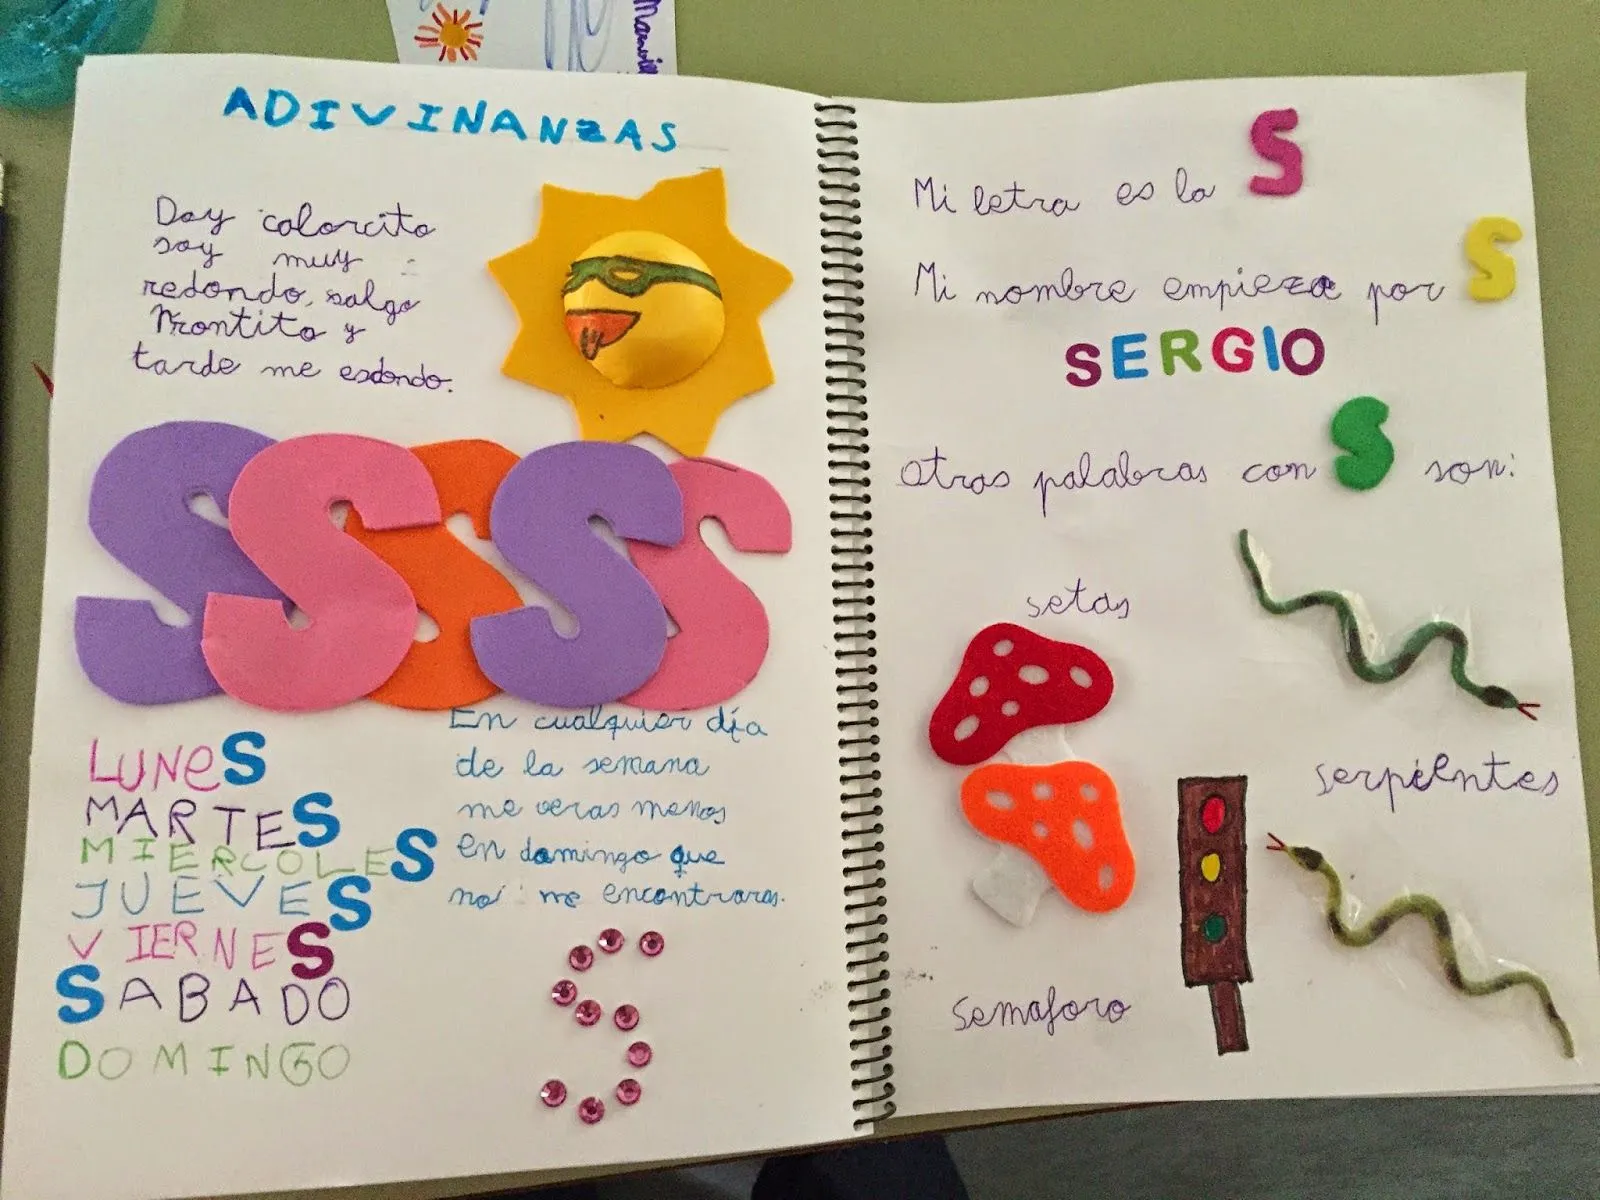 ADIVINANZAS
Doy calorcito
soy muy
redondo, salgo
Prontito y
tarde me escondo.
SSSSS
LUNES
MARTES
MIERCOLES
JUEVES
VIERNES
SABADO
DOMINGO
En cualquier día
de la semana
me veras menos
en domingo que
no me encontraras.
S
Mi letra es la S
Mi nombre empieza por S
SERGIO
Otras palabras con S son:
setas
serpientes
semaforo